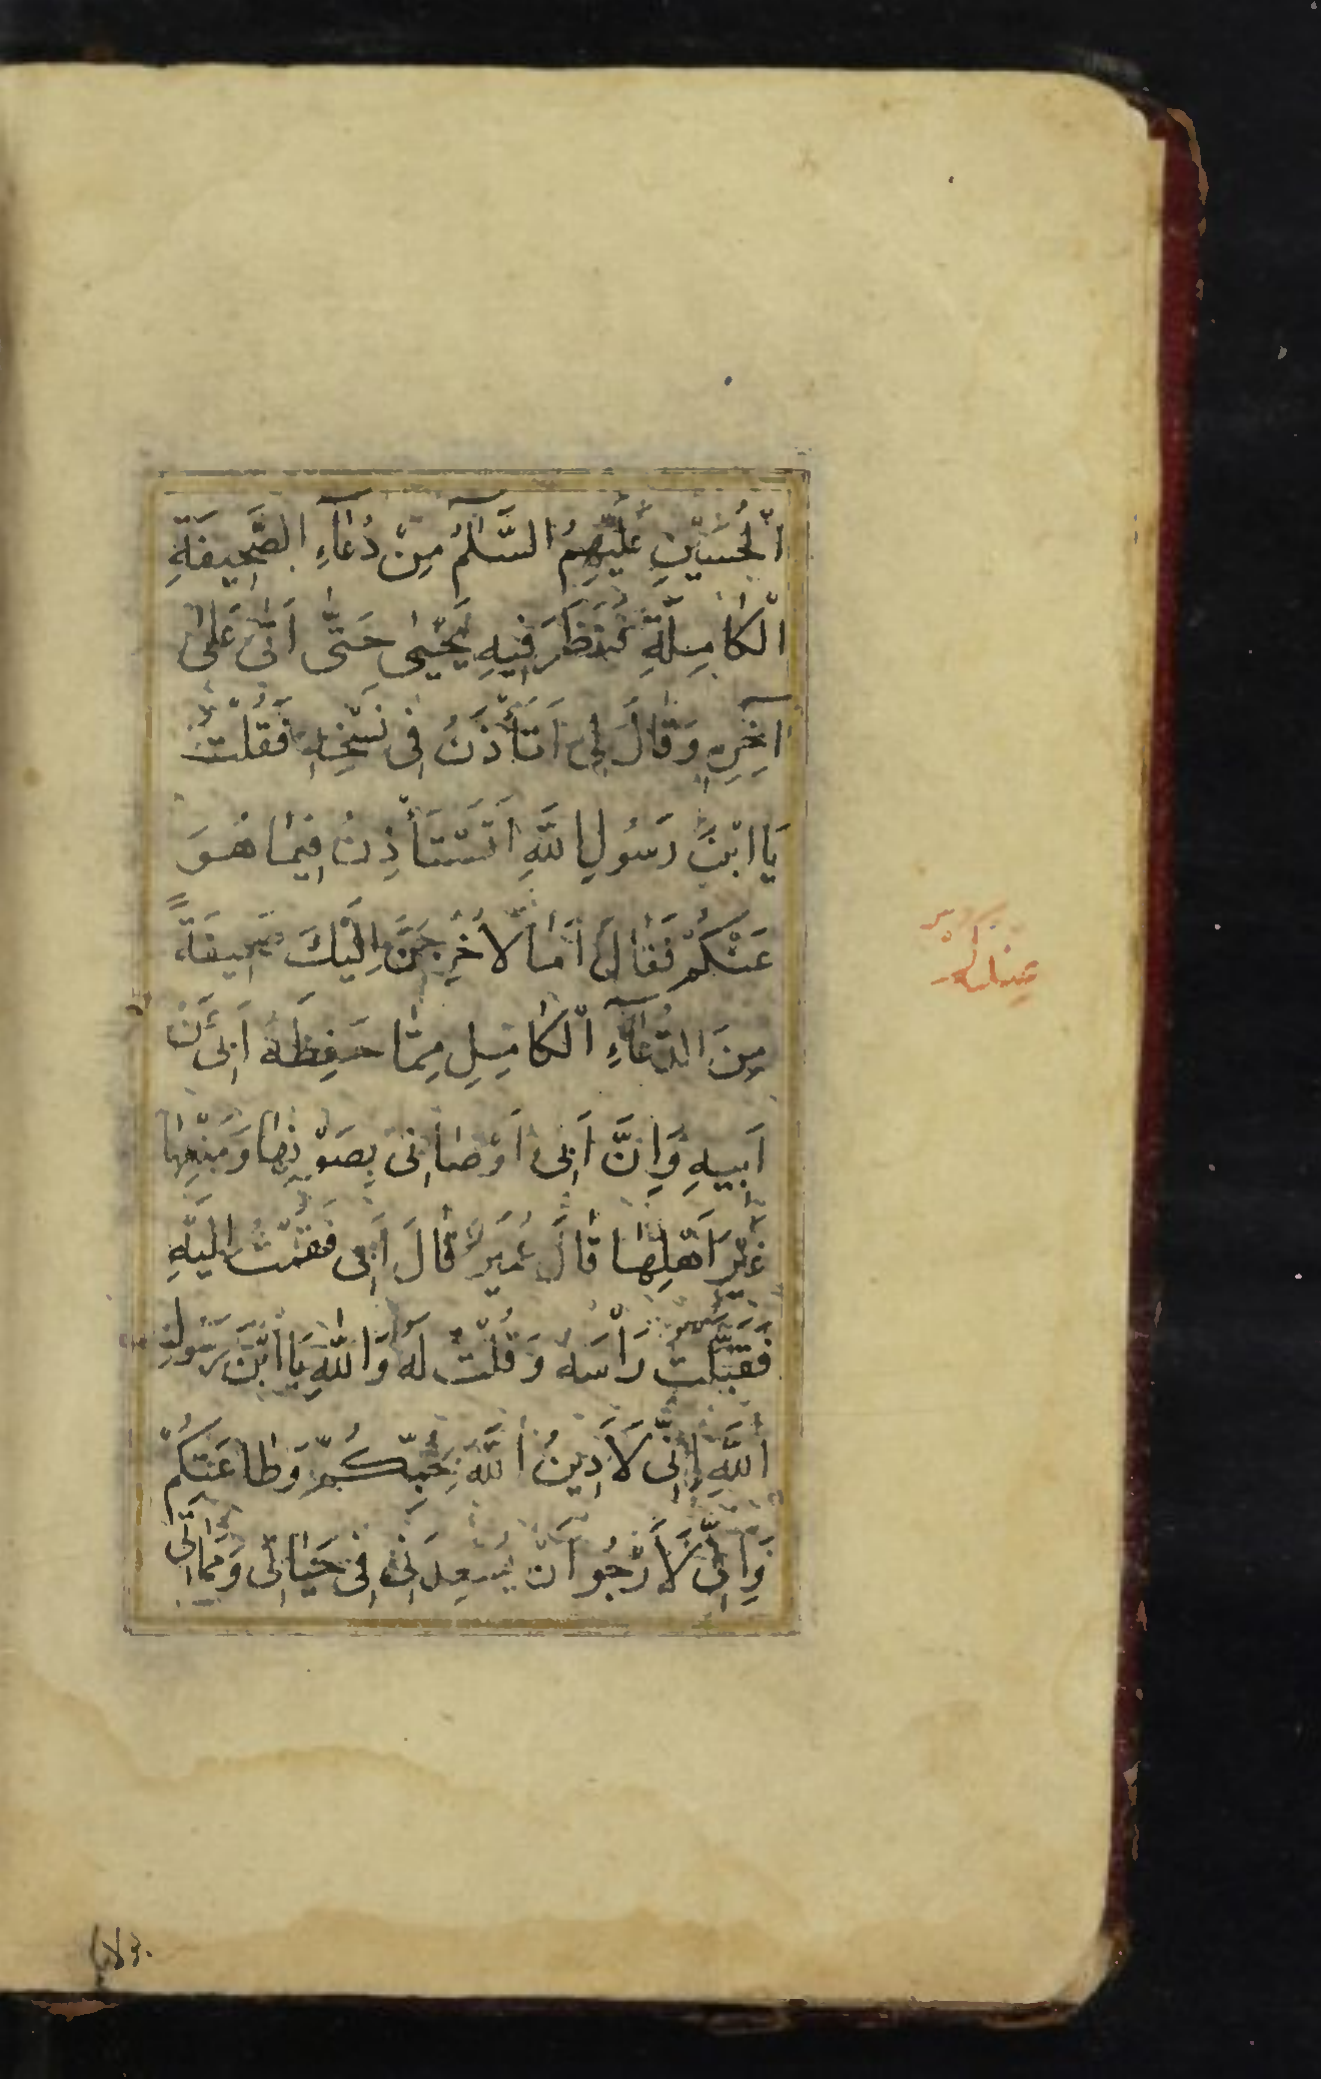 الْحُسَيْنِ عَلَيْهِمُ السَّلٰمُ مِنْ دُعَآءِ الصَّحِيفَةِ
الْكٰامِلَةِ فَنَظَرَ فِيهِ يَحْيٰى حَتّٰى اَتٰى عَلٰى
آخِرِهِ وَقٰالَ لِى اَتَأْذَنُ فِى نَسْخِهِ فَقُلْتُ
يَا ابْنَ رَسُولِ اللّٰهِ اَتَسْتَأْذِنُ فِيمٰا هُوَ
عَنْكُمْ فَقٰالَ اَمٰا لَأُخْرِجَنَّ اِلَيْكَ صَحِيفَةً
مِنَ الدُّعٰآءِ الْكٰامِلِ مِمّٰا حَفِظَهُ اَبِى عَنْ
اَبِيهِ وَاِنَّ اَبِى اَوْصٰانِى بِصَوْنِهٰا وَمَنْعِهٰا
غَيْرَ اَهْلِهٰا قٰالَ عُمَيْرٌ قٰالَ اَبِى فَقُمْتُ اِلَيْهِ
فَقَبَّلْتُ رَأْسَهُ وَقُلْتُ لَهُ وَاللّٰهِ يَا ابْنَ رَسُولِ
اللّٰهِ اِنِّى لَاَدِينُ اللّٰهَ بِحُبِّكُمْ وَطٰاعَتِكُمْ
وَاِنِّى لَاَرْجُو اَنْ يُسْعِدَنِى فِى حَيٰاتِى وَمَمٰاتِى
عندكم